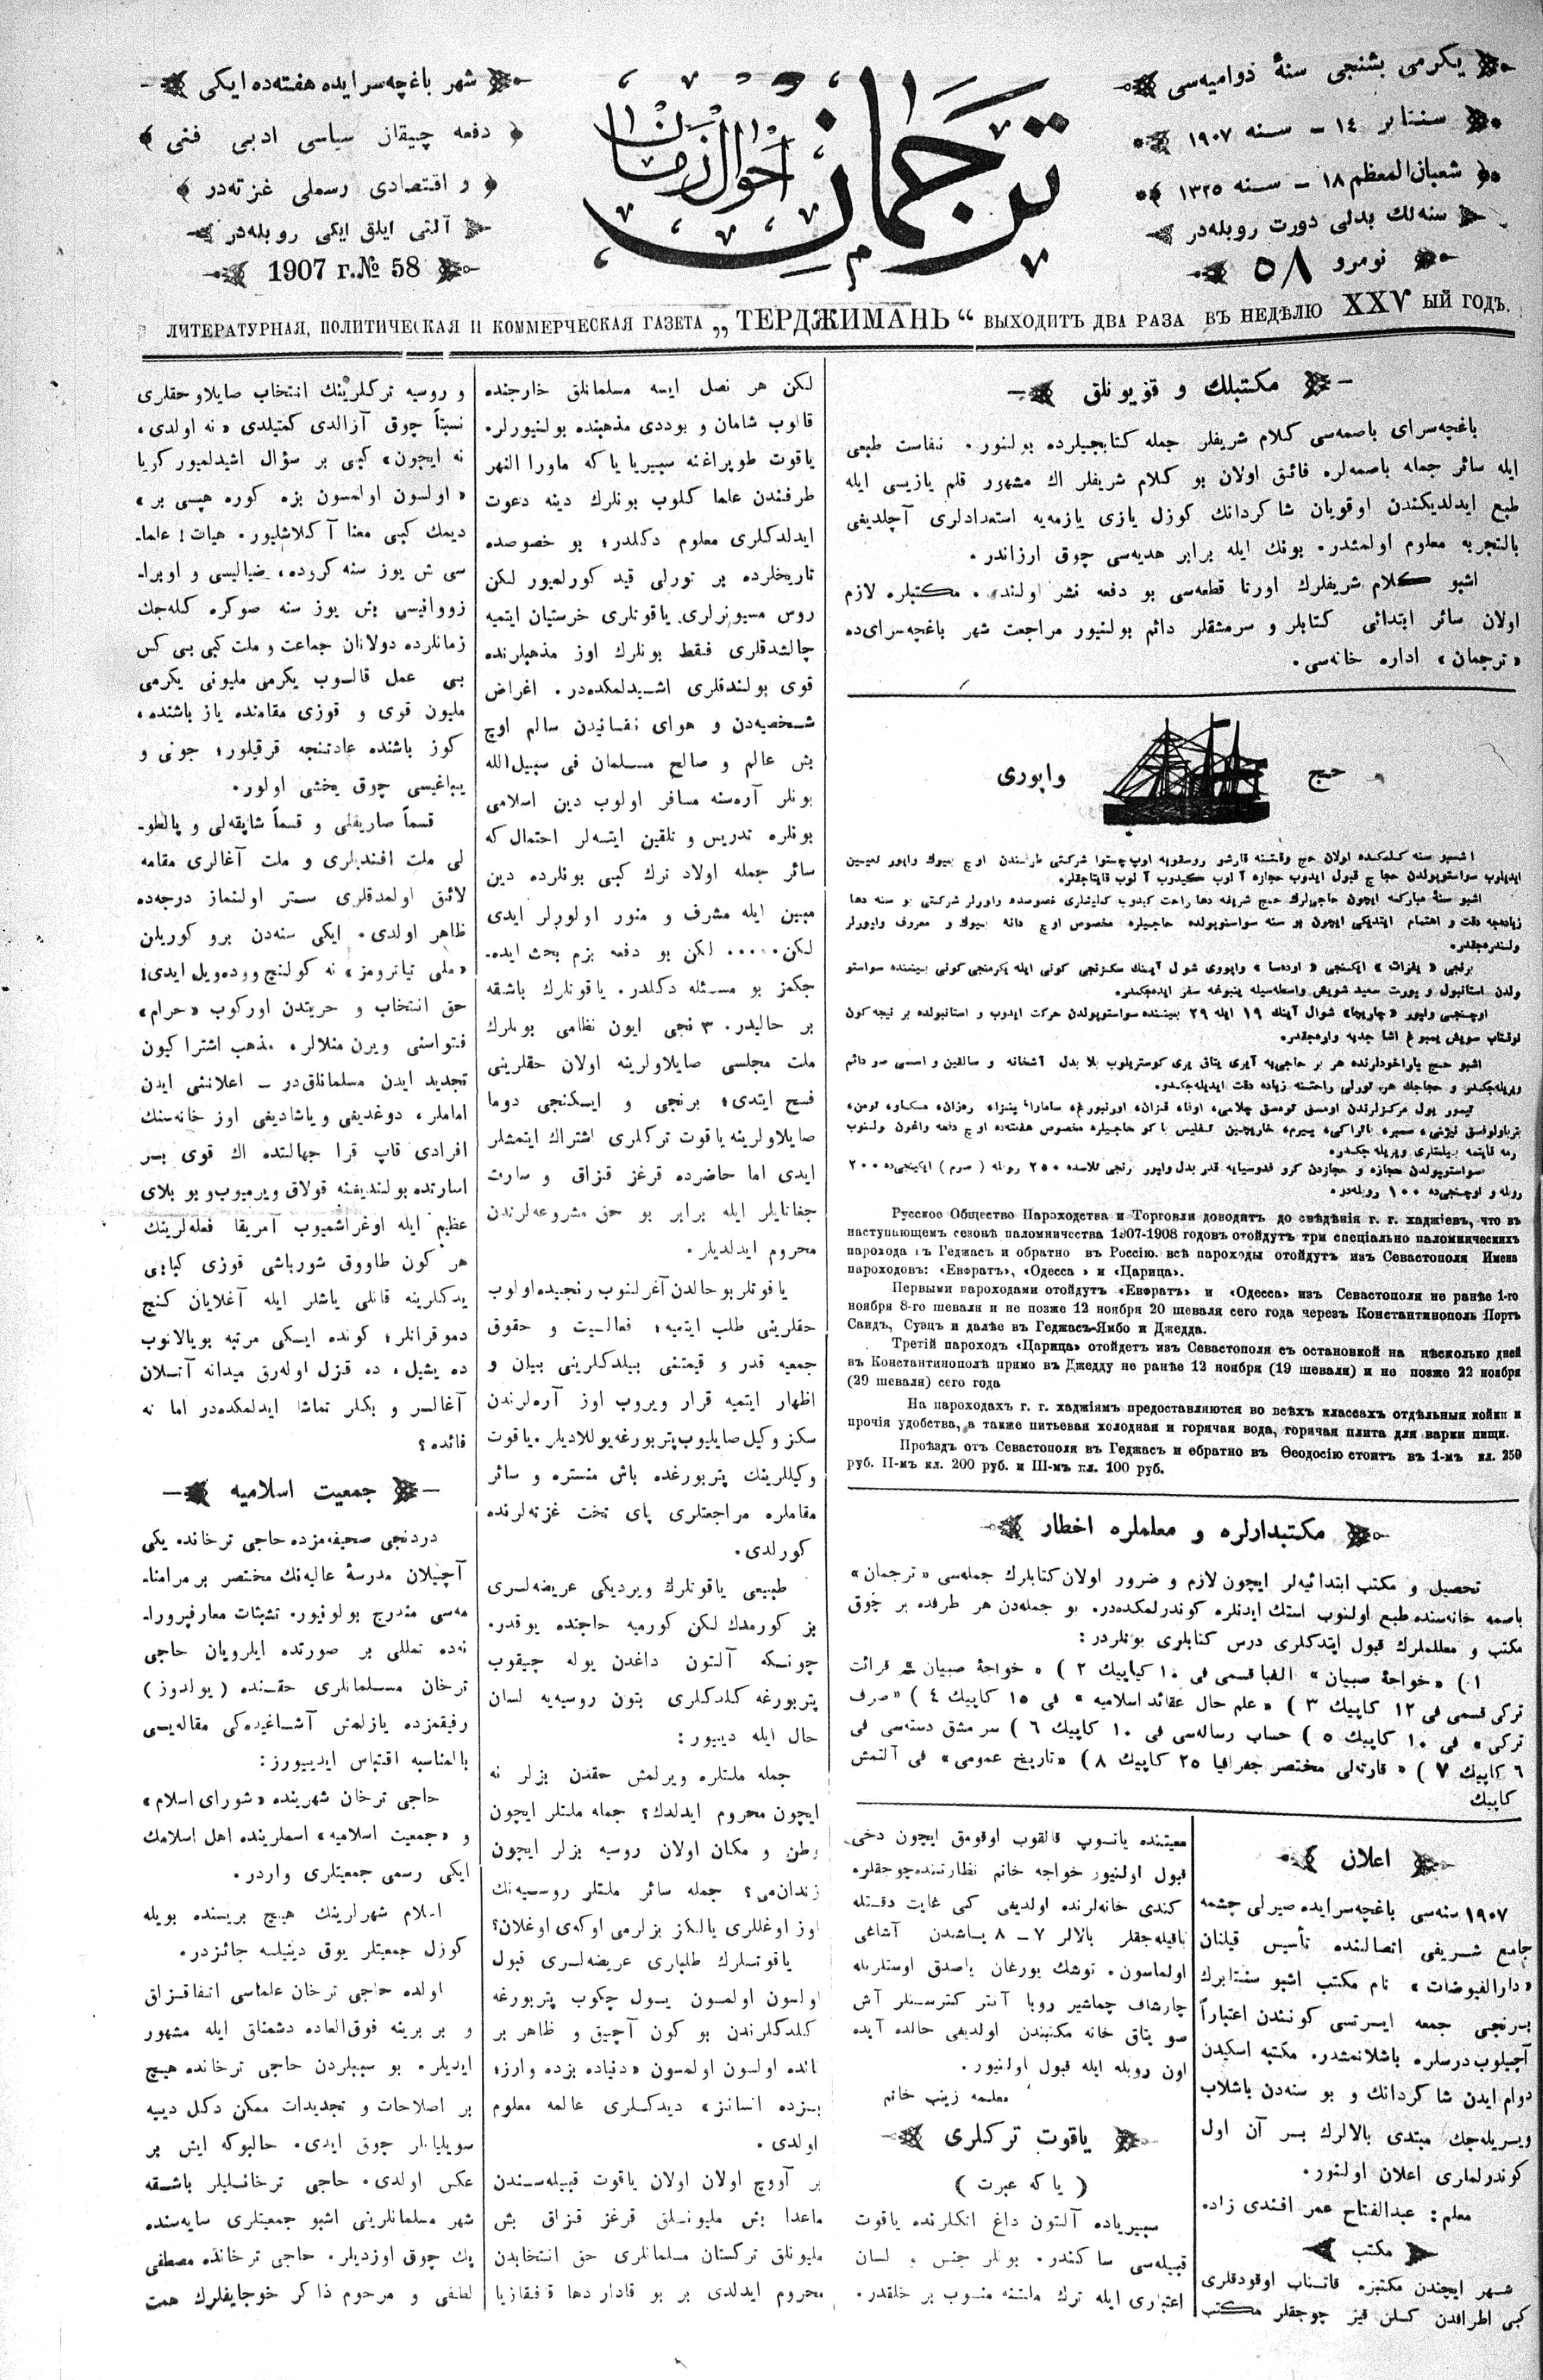 یكرمی بشنجی سنهٔ دوامیه‌سی
سنتابر ١٤ – سنه ١٩٠٧
شعبان‌المعظم ١٨ – سنه ١٣٢٥
سنه‌لك بدلی دورت روبله‌در
نومرو ٥٨
ترجمان
احوال زمان
شهر باغچه‌سرایده هفته‌ده ایكی
دفعه چیقار سیاسی ادبی فنی
و اقتصادی رسملی غزته‌در
آلتی ایلق ایكی روبله‌در
1907 г. № 58
ЛИТЕРАТУРНАЯ, ПОЛИТИЧЕСКАЯ И КОММЕРЧЕСКАЯ ГАЗЕТА „ТЕРДЖИМАНЬ“ ВЫХОДИТЪ ДВА РАЗА ВЪ НЕДѢЛЮ XXV ЫЙ ГОДЪ.
مكتبلك و قزیونلق
باغچه‌سرای باصمه‌سی كلام شریفلر جمله كتابجیلرده بولنور. نفاست طبعی
ایله سائر جمله باصمه‌لره فائق اولان بو كلام شریفلر اك مشهور قلم یازیسی ایله
طبع ایدلدیكندن اوقویان شاكردانك كوزل یازی یازمه‌یه استعدادلری آچلدیغی
بالتجربه معلوم اولمشدر. بونك ایله برابر هدیه‌سی چوق ارزاندر.
اشبو كلام شریفلرك اورتا قطعه‌سی بو دفعه نشر اولندی. مكتبلره لازم
اولان سائر ابتدائی كتابلر و سرمشقلر دائم بولنیور مراجعت شهر باغچه‌سرای‌ده
«ترجمان» اداره خانه‌سی.
حج واپوری
اشبو سنه كلمكده اولان حج وقتنه قارشو روسقویه اوپ‌چستوا شركتی طرفندن اوچ بیوك واپور تعیین
ایدیلوب سواستوپولدن حجاج قبول ایدوب حجازه آلوب كیدوب آلوب قایتاجقلر.
اشبو سنهٔ مباركه ایچون حاجی‌لرك حج شریفه دها راحت كیدوب كلیشلری خصوصده واپورلر شركتی بو سنه دها
زیاده‌جه دقت و اهتمام ایتدیكی ایچون بو سنه سواستوپولده حاجیلره مخصوص اوچ دانه بیوك و معروف واپورلر
برنجی «یفرات» ایكنجی «اوده‌سا» واپوری شوال آینك سكزنجی كونی ایله یكرمنجی كونی بیننده سواستو
ولدن استانبول و پورت سعید شویش واسطه‌سیله ینبوغه سفر ایده‌جكدر.
اوچنجی واپور «چاریچا» شوال آینك ١٩ ایله ٢٩ بیننده سواستوپولدن حركت ایدوب و استانبولده بر نیجه كون
اشبو حج پاراخودلرنده هر بر حاجی‌یه آیری یتاق یری كوستریلوب بلا بدل آشخانه و سالقین و اسسی صو دائم
ویریله‌جكدر و حجاجك هر تورلی راحتنه زیاده دقت ایدیله‌جكدر.
سواستوپولدن حجازه و حجازدن كرو فدوسیایه قدر بدل واپور برنجی قلاسده ٢٥٠ روبله (صرم) ایكنجی‌ده ٢٠٠
روبله و اوچنجی‌ده ١٠٠ روبله‌در.
Русское Общество Пароходства и Торговли доводитъ до свѣдѣнія г. г. хаджіевъ, что въ
наступающемъ сезонѣ паломничества 1907-1908 годовъ отойдутъ три спеціально паломническихъ
парохода въ Геджасъ и обратно въ Россію. всѣ пароходы отойдутъ изъ Севастополя Имена
пароходовъ: «Евфратъ», «Одесса» и «Царица».
Первыми пароходами отойдутъ «Евфратъ» и «Одесса» изъ Севастополя не ранѣе 1-го
ноября 8-го шеваля и не позже 12 ноября 20 шеваля сего года черезъ Константинополь Портъ
Саидъ, Суэцъ и далѣе въ Геджасъ-Ямбо и Джедда.
Третій пароходъ «Царица» отойдетъ изъ Севастополя съ остановкой на нѣсколько дней
въ Константинополѣ прямо въ Джедду не ранѣе 12 ноября (19 шеваля) и не позже 22 ноября
(29 шеваля) сего года
На пароходахъ г. г. хаджіямъ предоставляются во всѣхъ классахъ отдѣльныя койки и
прочія удобства, а также питьевая холодная и горячая вода, горячая плита для варки пищи.
Проѣздъ отъ Севастополя въ Геджасъ и обратно въ Ѳеодосію стоитъ въ 1-мъ кл. 250
руб. II-мъ кл. 200 руб. и III-мъ кл. 100 руб.
مكتبدارلره و معلملره اخطار
تحصیل و مكتب ابتدائیه‌لر ایچون لازم و ضرور اولان كتابلرك جمله‌سی «ترجمان»
باصمه خانه‌سنده طبع اولنوب استك ایدنلره كوندرلمكده‌در. بو جمله‌دن هر طرفده بر چوق
مكتب و معلملرك قبول ایتدكلری درس كتابلری بونلردر:
١) «خواجهٔ صبیان» الفبا قسمی فی ١٠ كپاپیك ٢) «خواجهٔ صبیان» قرائت
تركی قسمی فی ١٢ كاپیك ٣) «علم حال عقائد اسلامیه» فی ١٥ كاپیك ٤) «صرف
تركی» فی ١٠ كاپیك ٥) حساب رساله‌سی فی ١٠ كاپیك ٦) سر مشق دسته‌سی فی
٦ كاپیك ٧) «قارته‌لی مختصر جغرافیا ٢٥ كاپیك ٨) «تاریخ عمومی» فی آلتمش
كاپیك
اعلان
١٩٠٧ سنه‌سی باغچه‌سرایده صیرلی چشمه
جامع شریفی اتصالنده تأسیس قیلنان
«دارالفیوضات» نام مكتب اشبو سنتابرك
برنجی جمعه ایرتسی كونندن اعتباراً
آچیلوب درسلره باشلانمشدر. مكتبه اسكیدن
دوام ایدن شاكردانك و بو سنه‌دن باشلاب
ویریله‌جك مبتدی بالالرك بر آن اول
كوندرلماری اعلان اولنور.
معلم: عبدالفتاح عمر افندی زاده.
مكتب
شهر ایچندن مكتبزه قاتناب اوقودقلری
كبی اطرافدن كلن قیز چوجقلر مكتب
معیتنده یاتوپ قالقوب اوقومق ایچون دخی
قبول اولنیور خواجه خانم نظارتنده چوجقلره
كندی خانه‌لرنده اولدیغی كبی غایت دقتله
باقیله‌جقلر بالالر ٧ – ٨ یاشدن آشاغی
اولماسون. توشك یورغان یاصدق اوستلریله
چارشاف چماشیر روبا آنتر كترسنلر آش
صو یتاق خانه مكتبندن اولدیغی حالده آیده
اون روبله ایله قبول اولنیور.
معلمه زینب خانم
یاقوت تركلری
(یاكه عبرت)
سیبریاده آلتون داغ اتكلرنده یاقوت
قبیله‌سی ساكندر. بونلر جنس و لسان
اعتباری ایله ترك ملتنه منسوب بر خلقدر.
لكن هر نصل ایسه مسلمانلق خارجنده
قالوب شامان و بوددی مذهبنده بولنیورلر.
یاقوت طوپراغنه سیبریا یاكه ماورا النهر
طرفندن علما كلوب بونلرك دینه دعوت
ایدلدكلری معلوم دكلدر؛ بو خصوصده
تاریخلرده بر تورلی قید كورلمیور لكن
روس مسیونرلری یاقوتلری خرستیان ایتمیه
چالشدقلری فقط بونلرك اوز مذهبلرنده
قوی بولندقلری اشیدلمكده‌در. اغراض
شخصیه‌دن و هوای نفسانیدن سالم اوچ
بش عالم و صالح مسلمان فی سبیل‌الله
بونلر آره‌سنه مسافر اولوب دین اسلامی
بونلره تدریس و تلقین ایتسه‌لر احتمال كه
سائر جمله اولاد ترك كبی بونلرده دین
مبین ایله مشرف و منور اولورلر ایدی
لكن..... لكن بو دفعه بزم بحث ایده‌-
جكمز بو مسئله دكلدر. یاقوتلرك باشقه
بر حالیدر. ٣ نجی ایون نظامی بونلرك
ملت مجلسی صایلاولرینه اولان حقلرینی
فسخ ایتدی؛ برنجی و ایكنجی دوما
صایلاولرینه یاقوت تركلری اشتراك ایتمشلر
ایدی اما حاضرده قرغز قزاق و سارت
جغاتایلر ایله برابر بو حق مشروعه‌لرندن
محروم ایدلدیلر.
یاقوتلر بو حالدن آغرلنوب رنجیده اولوب
حقلرینی طلب ایتمیه؛ فعالیت و حقوق
جمعیه قدر و قیمتنی بیلدكلرینی بیان و
اظهار ایتمیه قرار ویروب اوز آره‌لرندن
سكز وكیل صایلیوب پتربورغه یوللادیلر. یاقوت
وكیللرینك پتربورغده باش منستره و سائر
مقاملره مراجعتلری پای تخت غزته‌لرنده
كورلدی.
طبیعی یاقوتلرك ویردیكی عریضه‌لری
بز كورمدك لكن كورمیه حاجتده یوقدر.
چونكه آلتون داغدن یوله چیقوب
پتربورغه كلدكلری بتون روسیه‌یه لسان
حال ایله دییور:
جمله ملتلره ویرلمش حقدن بزلر نه
ایچون محروم ایدلدك؟ جمله ملتلر ایچون
وطن و مكان اولان روسیه بزلر ایچون
زندان‌می؟ جمله سائر ملتلر روسیه‌نك
اوز اوغللری یالكز بزلرمی اوكه‌ی اوغلان؟
یاقوتلرك طلبلری عریضه‌لری قبول
اولسون اولمسون یول چكوب پتربورغه
كلدكلرندن بو كون آچیق و ظاهر بر
فائده اولسون اولمسون «دنیاده بزده وارز،
بزده انسانز» دیدكلری عالمه معلوم
اولدی.
بر آووچ اولان اولان یاقوت قبیله‌سندن
ماعدا بش ملیونلق قرغز قزاق بش
ملیونلق تركستان مسلمانلری حق انتخابدن
محروم ایدلدی بر بو قادار دها قفقازیا
و روسیه تركلرینك انتخاب صایلاو حقلری
نسبتاً چوق آزالدی كمتیلدی «نه اولدی،
نه ایچون» كبی بر سؤال اشیدلمیور كریا
«اولسون اولمسون بزه كوره هپسی بر»
دیمك كبی معنا آكلاشلیور. هیات! علما-
سی بش یوز سنه كروده، ضیالیسی و اوبرا-
زووانیسی بش یوز سنه صوكره كله‌جك
زمانلرده دولانان جماعت و ملت كبی بی كس
بی عمل قالوب یكرمی ملیونی یكرمی
ملیون قوی و قوزی مقامنده یاز باشنده،
كوز باشنده عادتنجه قرقیلور؛ جونی و
یپاغیسی چوق یخشی اولور.
قسماً صاریغلی و قسماً شاپقه‌لی و پالطو-
لی ملت افندیلری و ملت آغالری مقامه
لائق اولمدقلری ستر اولنماز درجه‌ده
ظاهر اولدی. ایكی سنه‌دن برو كوریلن
«ملی تیاترومز» نه كولنج ووده‌ویل ایدی!
حق انتخاب و حریتدن اوركوب «حرام»
فتواسنی ویرن منلالر، مذهب اشتراكیون
تجدید ایدن مسلمانلق‌در – اعلاننی ایدن
اماملر، دوغدیغی و یاشادیغی اوز خانه‌سنك
افرادی قاپ قرا جهالتده اك قوی بر
اسارتده بولندیغنه قولاق ویرمیوب و بو بلای
عظیم ایله اوغراشمیوب آمریقا فعله‌لرینك
هر كون طاووق شورباشی قوزی كبابی
یدكلرینه قانلی یاشلر ایله آغلایان كنج
دموقراتلر؛ كونده ایكی مرتبه بویالانوب
ده یشیل، ده قزل اوله‌رق میدانه آتلان
آغالر و بكلر تماشا ایدلمكده‌در اما نه
فائده؟
جمعیت اسلامیه
دردنجی صحیفه‌مزده حاجی ترخانده یكی
آچیلان مدرسهٔ عالیه‌نك مختصر بر مرامنا-
مه‌سی مندرج بولونیور. تشبثات معارفپرورا-
نه‌ده تمللی بر صورتده ایلرویان حاجی
ترخان مسلمانلری حقنده (یولدوز)
رفیقمزده یازلمش آشاغیده‌كی مقاله‌یی
بالمناسبه اقتباس ایدییورز:
حاجی ترخان شهرینده «شورای اسلام»
و «جمعیت اسلامیه» اسملرینده اهل اسلامك
ایكی رسمی جمعیتلری واردر.
اسلام شهرلرینك هیچ بریسنده بویله
كوزل جمعیتلر یوق دینیلسه جائزدر.
اولده حاجی ترخان علماسی اتفاقزاق
و بر برینه فوق‌العاده دشمنلق ایله مشهور
ایدیلر. بو سببلردن حاجی ترخانده هیچ
بر اصلاحات و تجدیدات ممكن دكل دییه
سویلیانلر چوق ایدی. حالبوكه ایش بر
عكس اولدی. حاجی ترخانلیلر باشقه
شهر مسلمانلرینی اشبو جمعیتلری سایه‌سنده
پك چوق اوزدیلر. حاجی ترخانده مصطفی
لطفی و مرحوم ذاكر خوجایفلرك همت